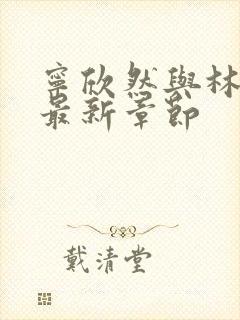 寧欣然與林
最新章節
戴清堂